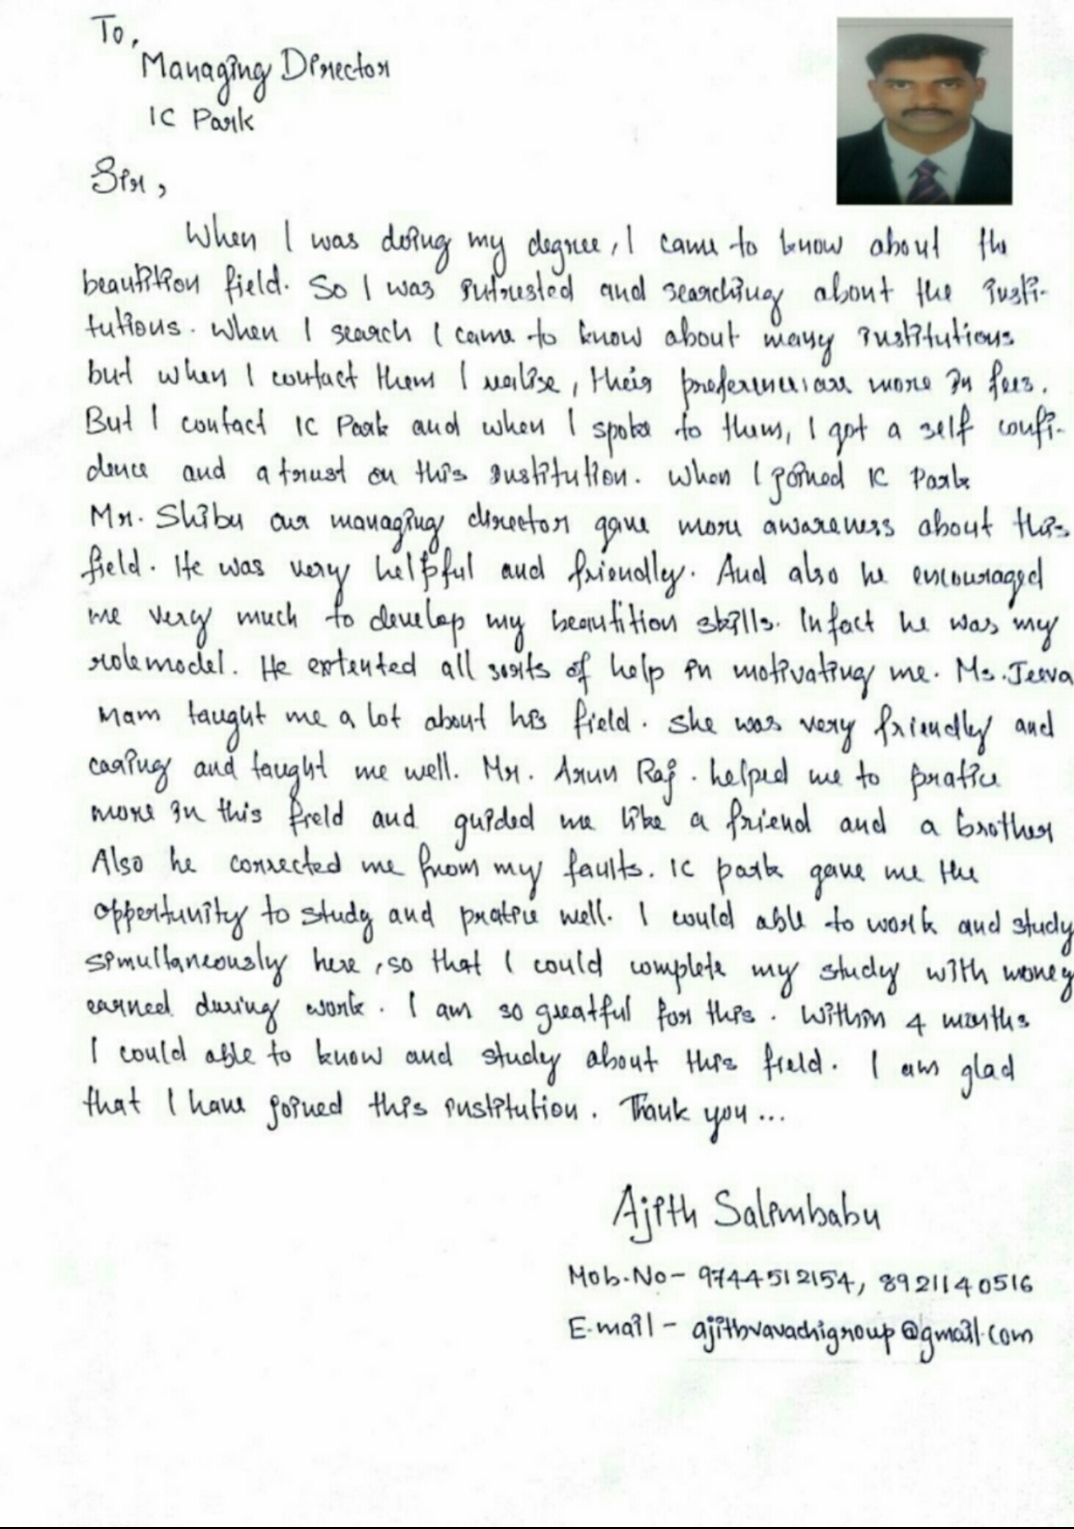 To,
Managing Director
IC Park
Sir,
When I was doing my degree, I came to know about the
beautition field. So I was intrested and searching about the insti-
tutions. When I search I came to know about many institutions
but when I contact them I realise, their preferences are more in fees.
But I contact IC Park and when I spoke to them, I got a self confi-
dence and a trust on this institution. When I joined IC Park
Mr. Shibu our managing director gave more awareness about this
field. He was very helpful and friendly. And also he encouraged
me very much to develop my beautition skills. Infact he was my
rolemodel. He extented all sorts of help in motivating me. Ms. Jeeva
Mam taught me a lot about his field. She was very friendly and
caring and taught me well. Mr. Arun Raj. helped me to pratice
more in this field and guided me like a friend and a brother
Also he corrected me from my faults. IC park gave me the
oppertunity to study and pratice well. I could able to work and study
simultaneously here, so that I could complete my study with money
earned during work. I am so greatful for this. Within 4 months
I could able to know and study about this field. I am glad
that I have joined this institution. Thank you...
Ajith Salimbabu
Mob.No- 9744512154, 8921140516
E-mail - ajithvavachigroup@gmail.com